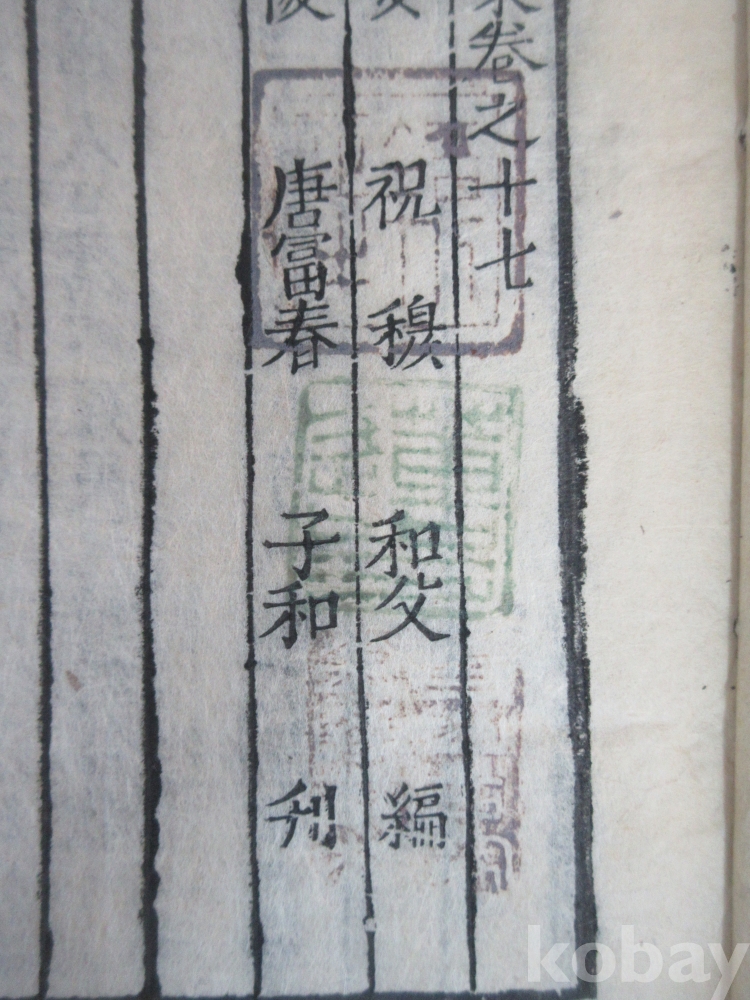 卷之十七
祝穆和父編
唐富春子和刊
kobay